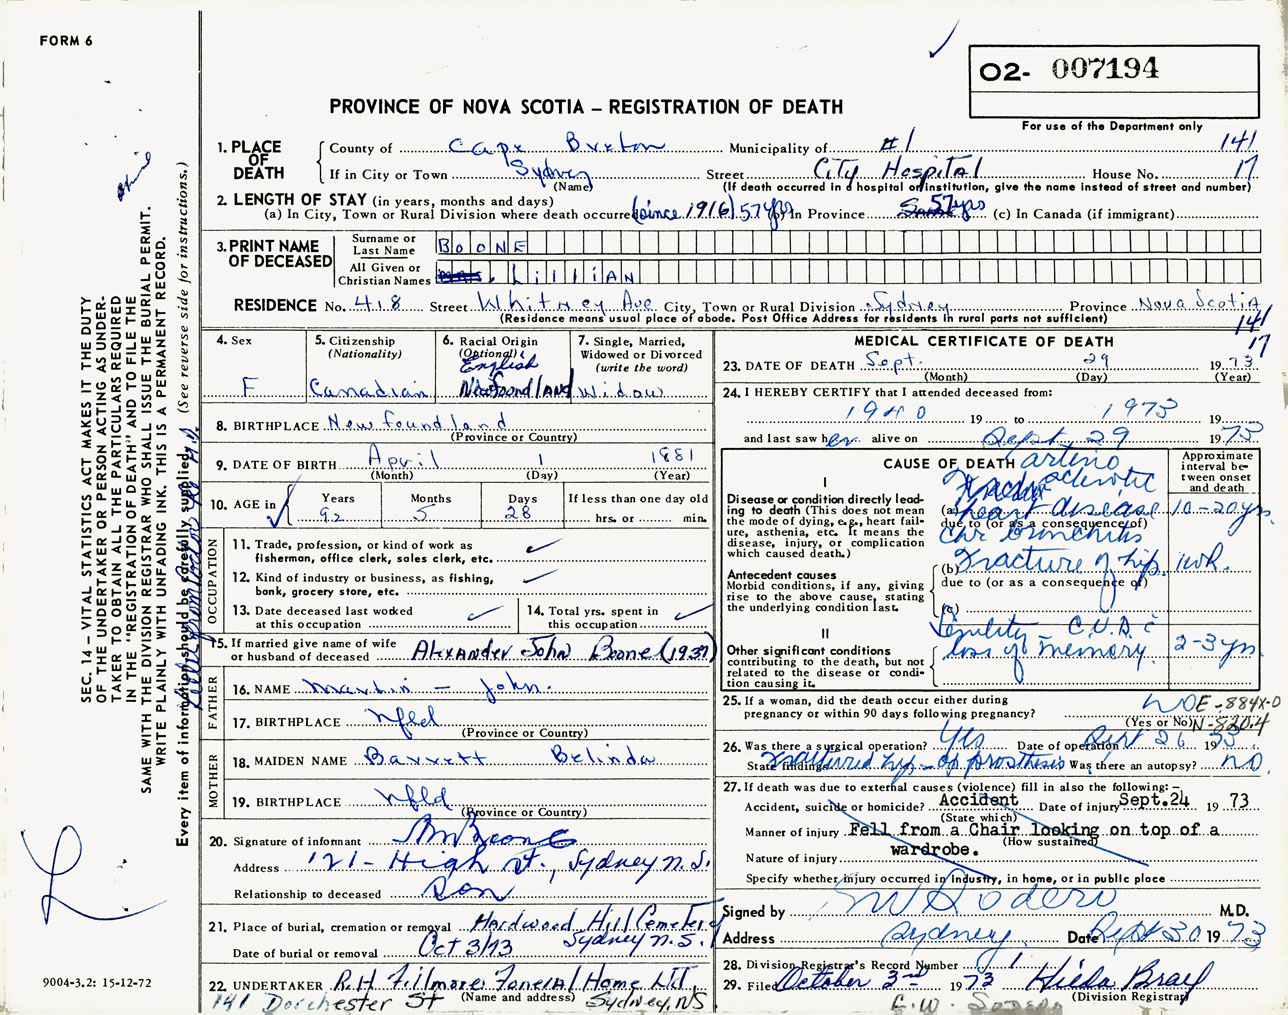 FORM 6
O2- 007194
PROVINCE OF NOVA SCOTIA – REGISTRATION OF DEATH
For use of the Department only
1. PLACE OF DEATH
County of Cape Breton Municipality of #1 141
If in City or Town Sydney Street City Hospital House No. 17
(Name) (If death occurred in a hospital or institution, give the name instead of street and number)
2. LENGTH OF STAY (in years, months and days)
(a) In City, Town or Rural Division where death occurred (since 1916) 57 yrs (b) In Province 57 yrs (c) In Canada (if immigrant)
3. PRINT NAME OF DECEASED
Surname or Last Name BOONE
All Given or Christian Names LILLIAN
RESIDENCE No. 418 Street Whitney Ave City, Town or Rural Division Sydney Province Nova Scotia
(Residence means usual place of abode. Post Office Address for residents in rural parts not sufficient)
141
17
4. Sex
F
5. Citizenship
(Nationality)
Canadian
6. Racial Origin
(Optional)
English
Newfoundland
7. Single, Married, Widowed or Divorced
(write the word)
Widow
8. BIRTHPLACE Newfoundland
(Province or Country)
9. DATE OF BIRTH April 1 1881
(Month) (Day) (Year)
10. AGE in Years Months Days If less than one day old
92 5 28 hrs. or min.
OCCUPATION
11. Trade, profession, or kind of work as
fisherman, office clerk, sales clerk, etc.
12. Kind of industry or business, as fishing,
bank, grocery store, etc.
13. Date deceased last worked
at this occupation
14. Total yrs. spent in
this occupation
15. If married give name of wife
or husband of deceased Alexander John Boone (1937)
FATHER
16. NAME Martin – John.
17. BIRTHPLACE Nfld
(Province or Country)
MOTHER
18. MAIDEN NAME Barrett Belinda
19. BIRTHPLACE Nfld
(Province or Country)
20. Signature of informant Boone
Address 121 - High St., Sydney N.S.
Relationship to deceased Son
21. Place of burial, cremation or removal Hardwood Hill Cemetery
Sydney N.S.
Date of burial or removal Oct 3/73
22. UNDERTAKER R.H. Fillmore Funeral Home Ltd.
(Name and address)
141 Dorchester St Sydney, NS
MEDICAL CERTIFICATE OF DEATH
23. DATE OF DEATH Sept. 29 1973
(Month) (Day) (Year)
24. I HEREBY CERTIFY that I attended deceased from:
1940 19 to 1973 19
and last saw her alive on Sept. 29 1973
CAUSE OF DEATH
Approximate interval between onset and death
I
Disease or condition directly leading to death (This does not mean the mode of dying, e.g., heart failure, asthenia, etc. It means the disease, injury, or complication which caused death.)
(a) arterio sclerotic
heart disease 10-20 yrs.
due to (or as a consequence of)
chr bronchitis
Antecedent causes
Morbid conditions, if any, giving rise to the above cause, stating the underlying condition last.
(b) Fracture of hip. 1 wk.
due to (or as a consequence of)
(c)
II
Other significant conditions
contributing to the death, but not related to the disease or condition causing it.
Senility – C.V.A. c̄
loss of memory. 2-3 yrs.
25. If a woman, did the death occur either during
pregnancy or within 90 days following pregnancy? NO
(Yes or No)
E-884X-0
N-820.4
26. Was there a surgical operation? Yes Date of operation Sept 26 1973.
State findings Fractured hip – op prosthesis Was there an autopsy? no.
27. If death was due to external causes (violence) fill in also the following:–
Accident, suicide or homicide? Accident Date of injury Sept.24 19 73
(State which)
Manner of injury Fell from a Chair looking on top of a
(How sustained)
wardrobe.
Nature of injury
Specify whether injury occurred in industry, in home, or in public place
Signed by M.D.
Address Sydney. Date Sept 30 1973
28. Division Registrar's Record Number 1
29. Filed October 3rd 1973 Hilda Bray
(Division Registrar)
SEC. 14 – VITAL STATISTICS ACT MAKES IT THE DUTY
OF THE UNDERTAKER OR PERSON ACTING AS UNDER-
TAKER TO OBTAIN ALL THE PARTICULARS REQUIRED
IN THE "REGISTRATION OF DEATH" AND TO FILE THE
SAME WITH THE DIVISION REGISTRAR WHO SHALL ISSUE THE BURIAL PERMIT.
WRITE PLAINLY WITH UNFADING INK. THIS IS A PERMANENT RECORD.
Every item of information should be carefully supplied. (See reverse side for instructions.)
9004-3.2: 15-12-72